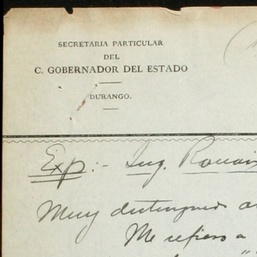 SECRETARIA PARTICULAR
DEL
C. GOBERNADOR DEL ESTADO
DURANGO.
Exp:- Ing. Rouaix
Muy distinguido
Me refiero a